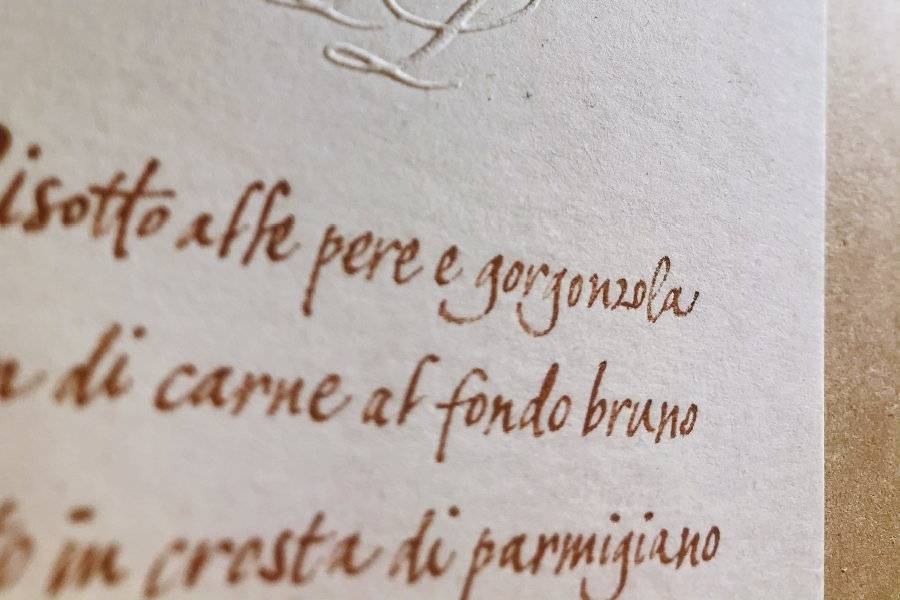 Risotto alle pere e gorgonzola
di carne al fondo bruno
in crosta di parmigiano